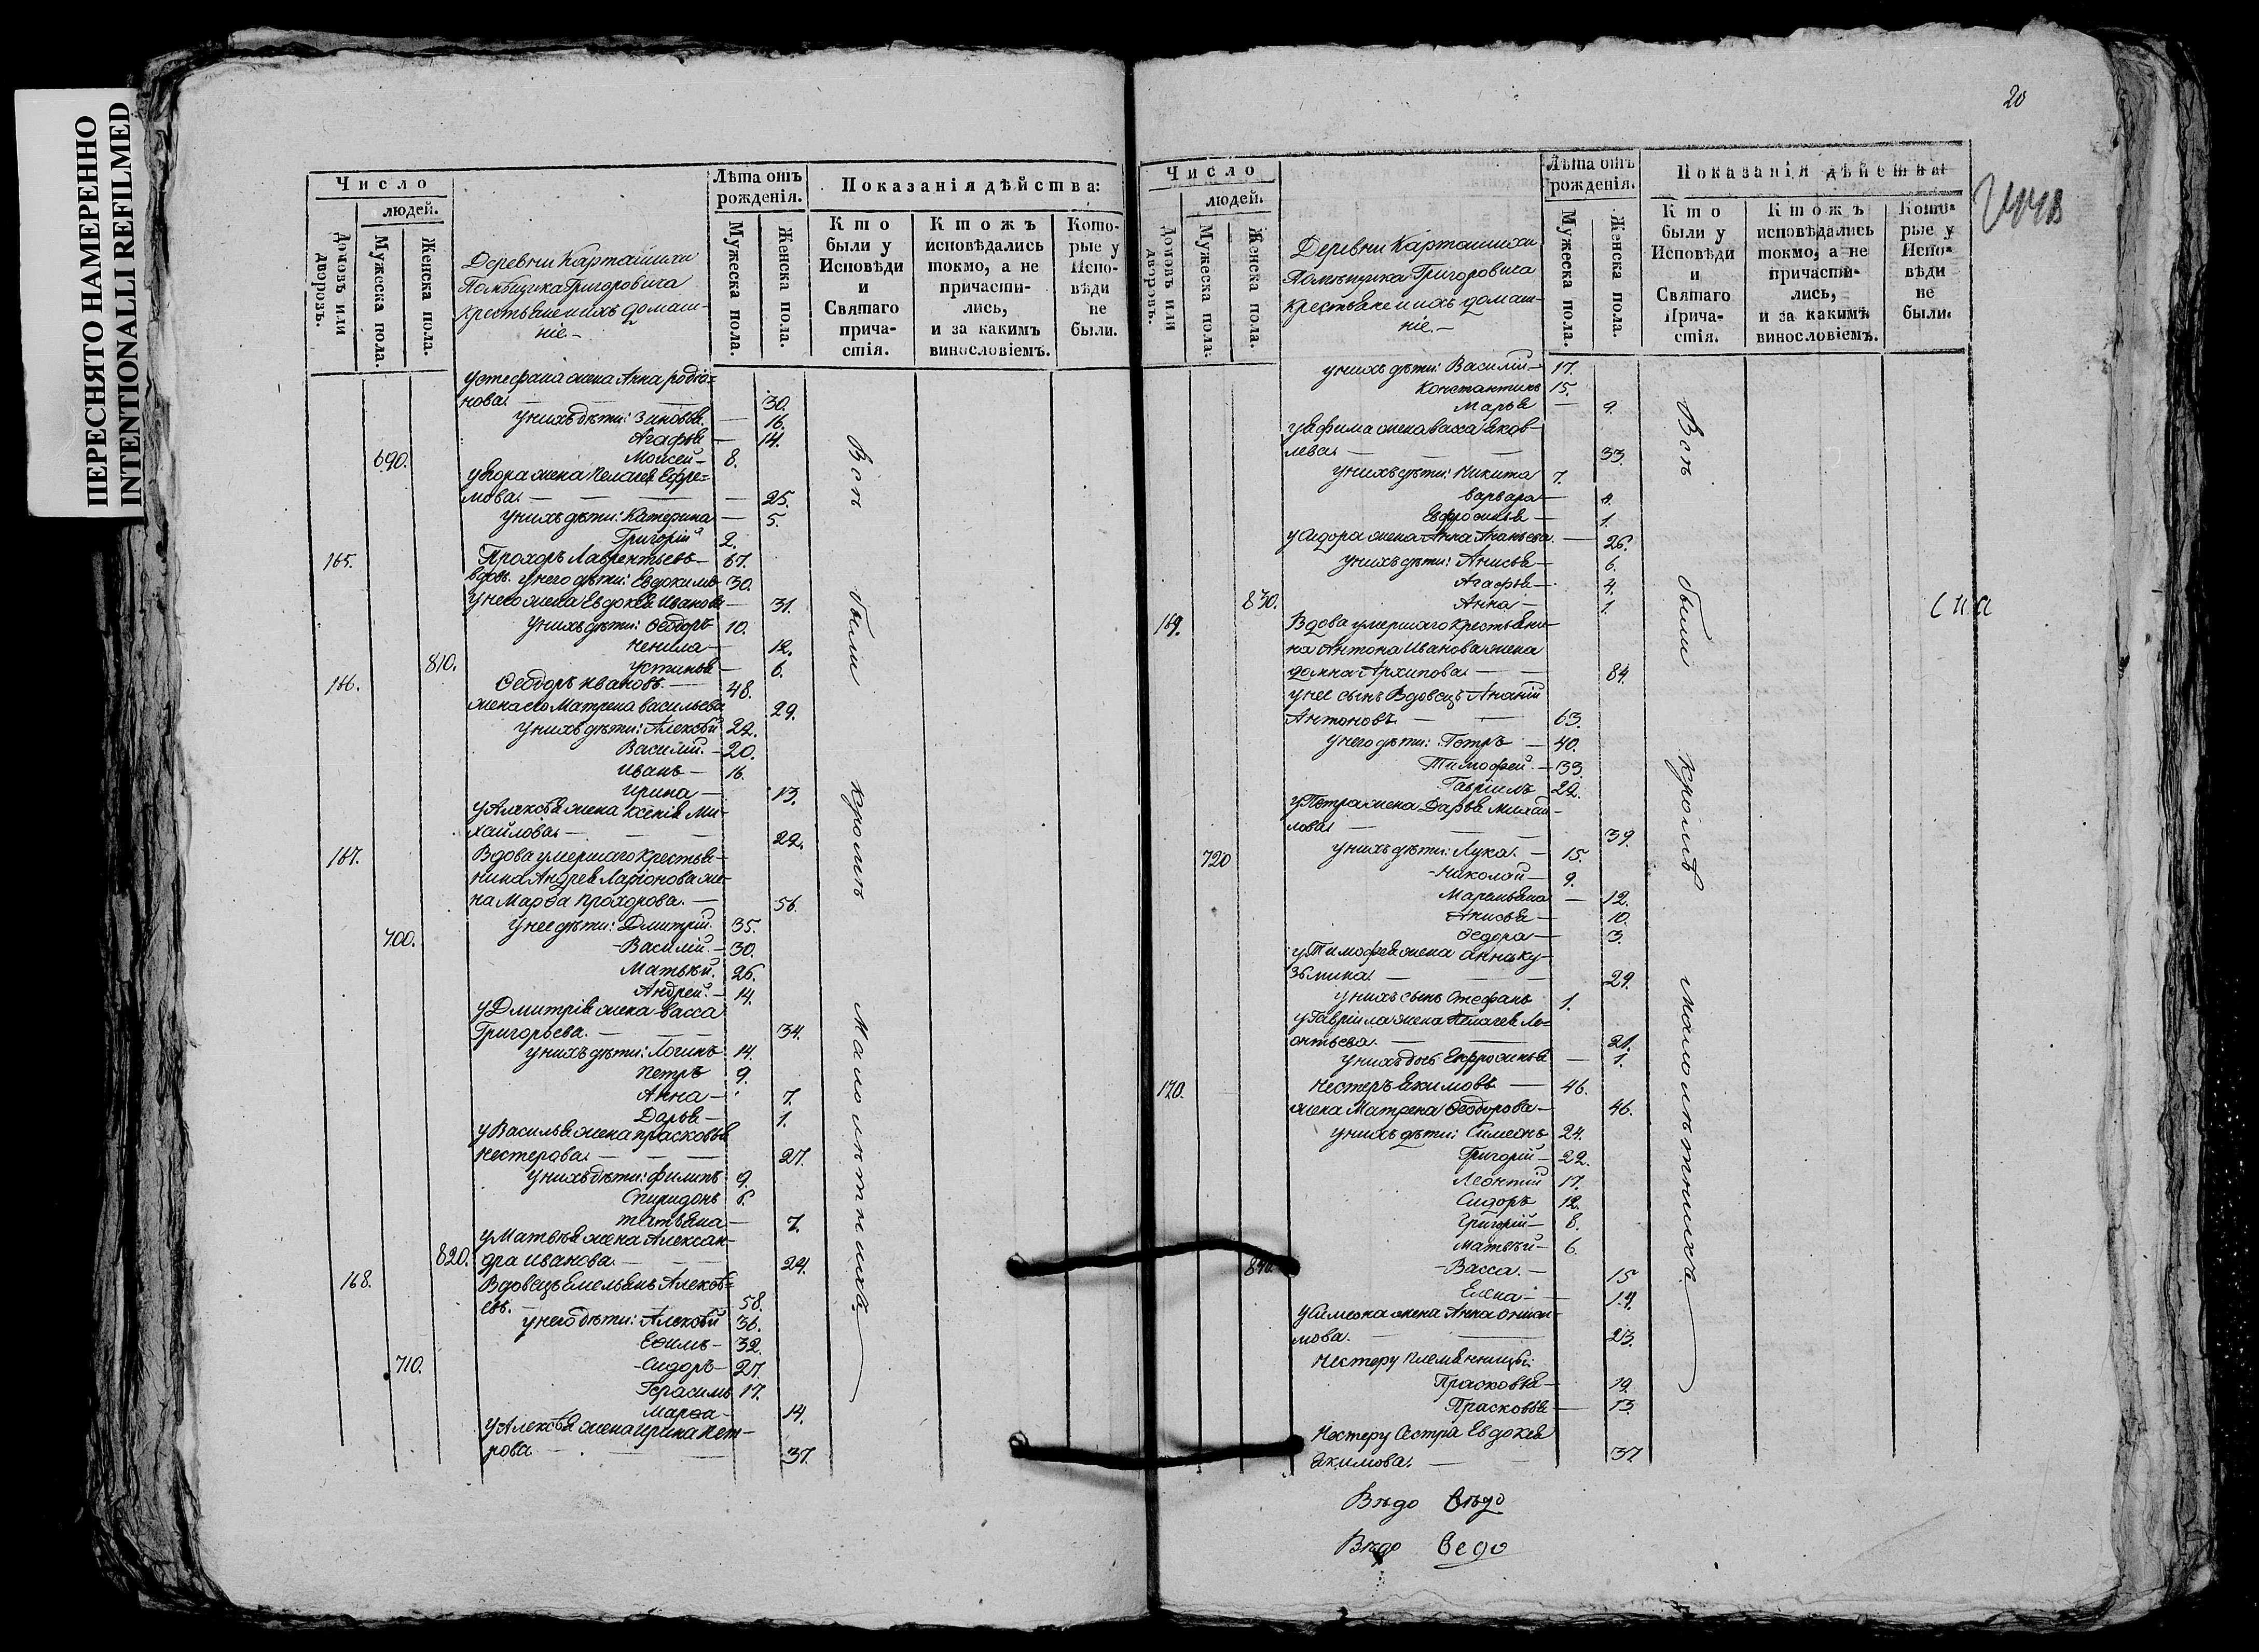 ПЕРЕСНЯТО НАМЕРЕННО
INTENTIONALLI REFILMED
Число
людей.
Домовъ или дворовъ.
Мужеска пола.
Женска пола.
Деревни Карташихи
Помѣщика Григоровича
крестьяне и ихъ домаш-
ніе.-
Лѣта отъ рожденія.
Мужеска пола.
Женска пола.
Показанія дѣйства:
Кто были у Исповѣди и Святаго причастія.
Ктожъ исповѣдались токмо, а не причастились, и за какимъ винословіемъ.
Которые у Исповѣди не были.
у Стефана жена Анна Родіо-
нова. — 30.
у нихъ дѣти: Зиновья. — 16.
Агафья — 14.
690. Моисей — 8.
у Егора жена Пелагея Ефре-
мова. — 25.
у нихъ дѣти: Катерина — 5.
Григорій 2.
165. Прохоръ Лаврентьевъ — 67.
вдовъ. у него дѣти: Евдокимъ 30.
у него жена Евдокея Иванова — 31.
у нихъ дѣти: Ѳеодоръ 10.
Ненила — 12.
810. Устинья — 6.
166. Ѳеодоръ Ивановъ. — 48.
жена его Матрена Васильева 29.
у нихъ дѣти: Алексѣй 22.
Василій. — 20.
Иванъ — 16.
Ирина — 13.
у Алексѣя жена Ксенія Ми-
хайлова — 22.
167. Вдова умершаго крестья-
нина Андрея Ларіонова же-
на Марѳа Прохорова. — 56.
у нее дѣти: Дмитрій. 35.
700. Василій. — 30.
Матвѣй. 26.
Андрей. — 14.
у Дмитрія жена Васса
Григорьева. — 34.
у нихъ дѣти: Логинъ 14.
Петръ 9.
Анна — 7.
Дарья — 1.
у Василья жена Прасковья
Нестерова. — 27.
у нихъ дѣти: Филипъ 9.
Спиридонъ 6.
Татьяна — 7.
у Матвѣя жена Алексан-
820. дра Иванова. — 24.
168. Вдовецъ Емельянъ Алексѣ-
евъ. — 58.
у него дѣти: Алексѣй 36.
Ефимъ — 32.
710. Сидоръ — 27.
Герасимъ 17.
Марѳа — 14.
у Алексѣя жена Ирина Пет-
рова — 37.
Всѣ были кромѣ малолѣтнихъ
20
Число
людей.
Домовъ или дворовъ.
Мужеска пола.
Женска пола.
Деревни Карташихи
Помѣщика Григоровича
крестьяне и ихъ домаш-
ніе.-
Лѣта отъ рожденія.
Мужеска пола.
Женска пола.
Показанія дѣйства:
Кто были у Исповѣди и Святаго Причастія.
Ктожъ исповѣдались токмо, а не причастились, и за какимъ винословіемъ.
Которые у Исповѣди не были.
у нихъ дѣти: Василій — 17.
Константинъ 15.
Марья — 9.
у Ефима жена Васса Яков-
лева — 33.
у нихъ дѣти: Никита 7.
Варвара — 4.
Евфросинья — 1.
у Сидора жена Анна Ананьева. — 26.
у нихъ дѣти: Анисья — 6.
Агафья — 4.
830. Анна — 1.
169. Вдова умершаго крестьяни-
на Антона Иванова жена
Домна Архипова. — 84.
у нее сынъ Вдовецъ Ананій
Антоновъ. — 63.
у него дѣти: Петръ — 40.
Тимофей. — 33.
Гавріилъ 22.
у Петра жена Дарья Михай-
лова — 39.
720 у нихъ дѣти: Лука. — 15.
Николай — 9.
Маремьяна — 12.
Анисья — 10.
Ѳедора — 3.
у Тимофея жена Анна Ку-
зьмина. — 29.
у нихъ сынъ Стефанъ 1.
у Гавріила жена Пелагея Ле-
онтьева. — 21.
у нихъ дочь Евфросинья — 1.
170. Нестеръ Якимовъ — 46.
жена Матрена Ѳеодорова — 46.
у нихъ дѣти: Симеонъ 24.
Григорій — 22.
Леонтій 17.
Сидоръ 12.
Григорій — 8.
Матвѣй — 6.
840. Васса. — 15
Елена — 14.
у Симеона жена Анна
мова. — 23.
Нестеру племянницы:
Прасковья — 19.
Прасковья — 13.
Нестеру сестра Евдокея
Якимова. — 37
Всѣ были кромѣ малолѣтнихъ
Вѣдо Вѣдо
Вѣдо Ведо